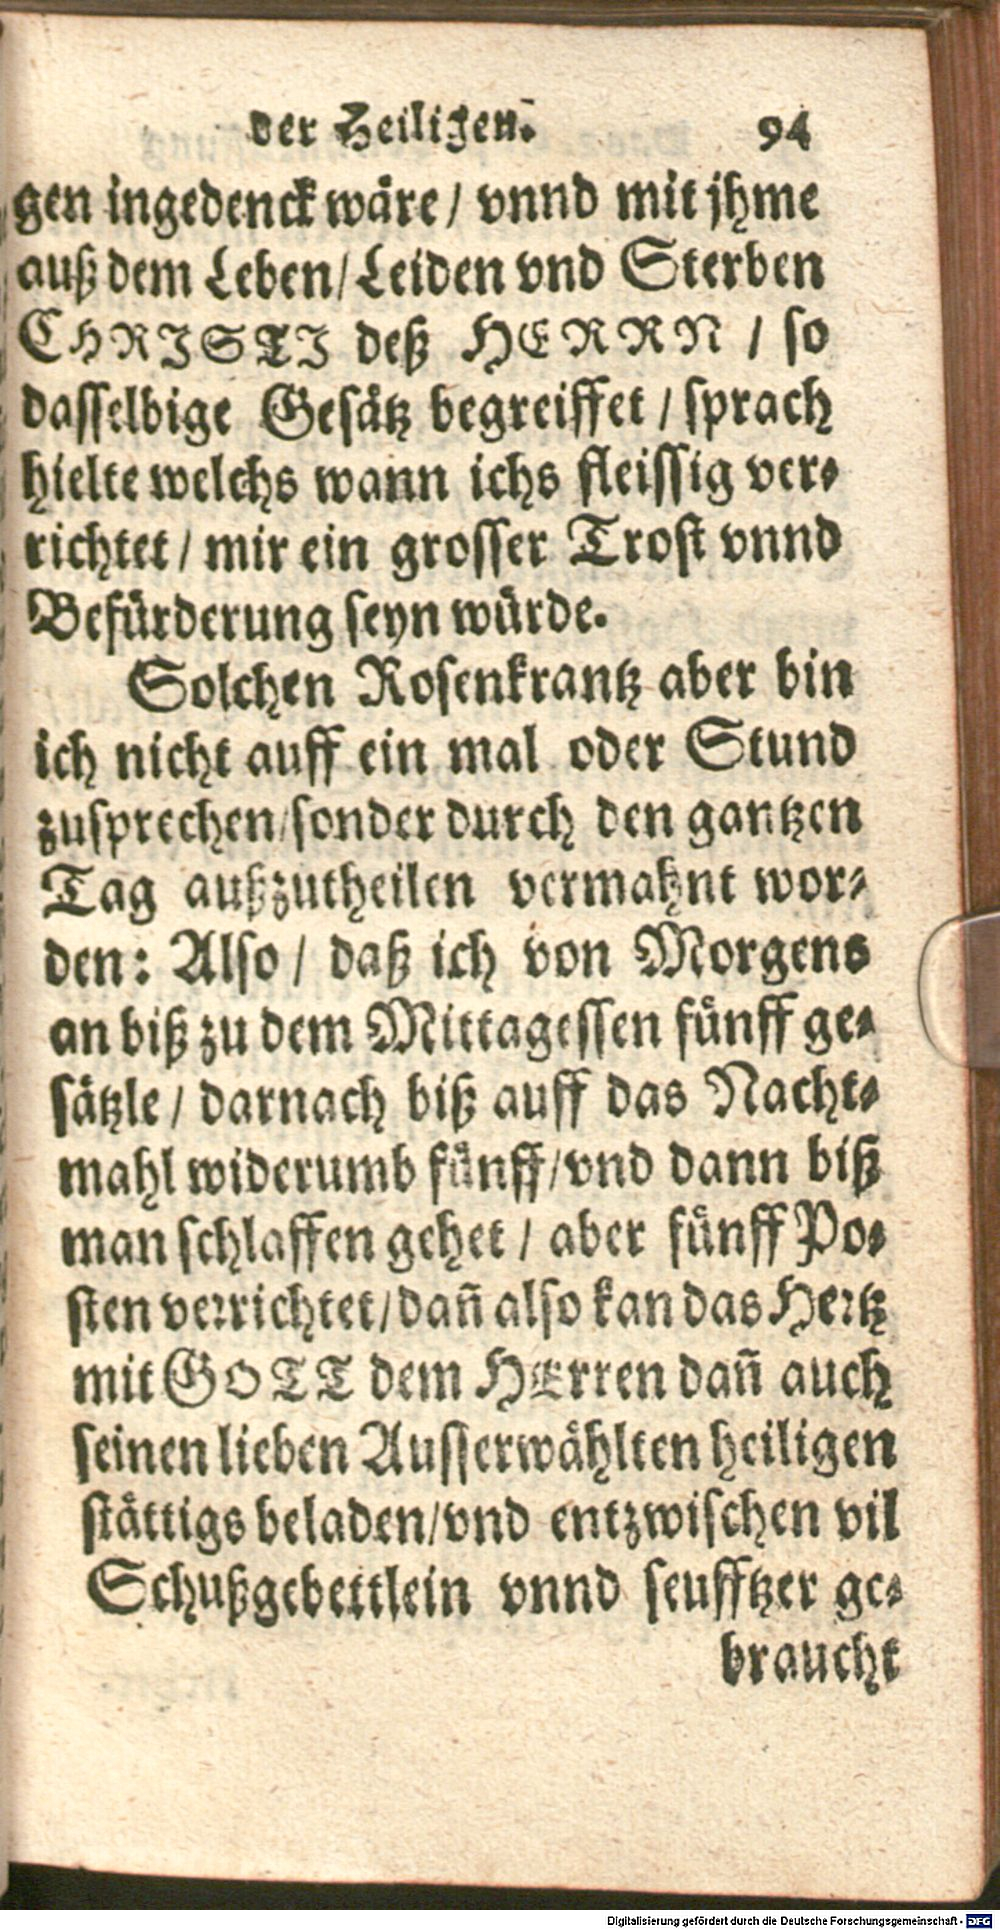 der Heiligen. 94
gen ingedenck wäre / vnnd mit jhme
auß dem Leben / Leiden vnd Sterben
CHRISTI deß HERRN / so
dasselbige Gesätz begreiffet / sprach
hielte welchs wann ichs fleissig ver-
richtet / mir ein grosser Trost vnnd
Befürderung seyn würde.
Solchen Rosenkrantz aber bin
ich nicht auff ein mal oder Stund
zusprechen / sonder durch den gantzen
Tag außzutheilen vermahnt wor-
den: Also / daß ich von Morgens
an biß zu dem Mittagessen fünff ge-
sätzle / darnach biß auff das Nacht-
mahl widerumb fünff / vnd dann biß
man schlaffen gehet / aber fünff Po-
sten verrichtet / dañ also kan das Hertz
mit GOTT dem HErren dañ auch
seinen lieben Ausserwählten heiligen
stättigs beladen / vnd entzwischen vil
Schußgebettlein vnnd seufftzer ge-
braucht
Digitalisierung gefördert durch die Deutsche Forschungsgemeinschaft - DFG